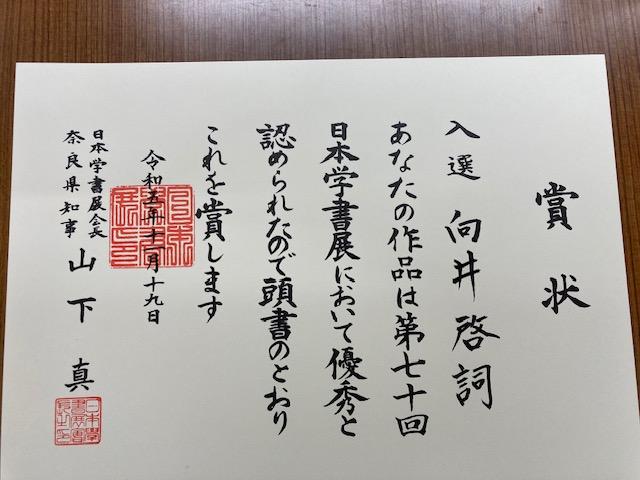 賞状
入選 向井啓詞
あなたの作品は第七十回
日本学書展において優秀と
認められたので頭書のとおり
これを賞します
令和五年十一月十九日
日本学書展会長
奈良県知事 山下 真